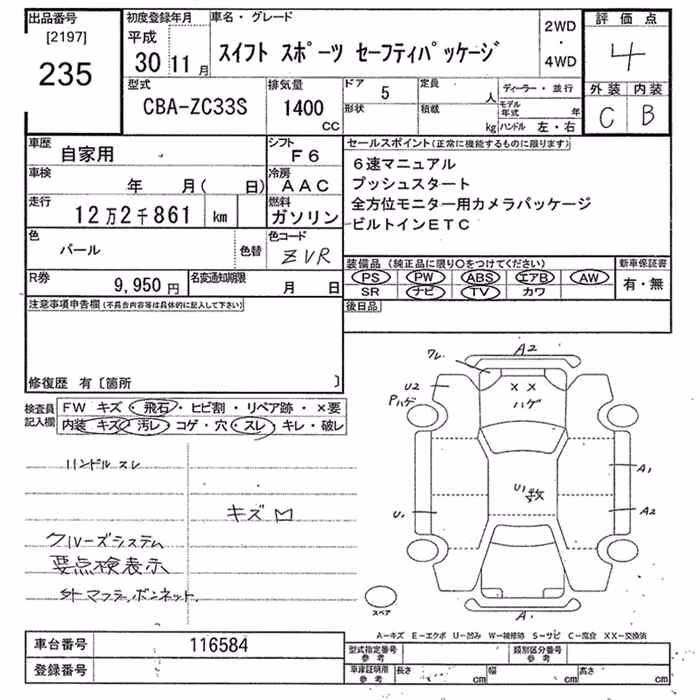 出品番号 初度登録年月 車名・グレード 評価点
[2197] 平成 2WD
235 30 11月 スイフト スポーツ セーフティパッケージ ・ 4
4WD
型式 排気量 ドア 5 定員 人 ディーラー・並行 外装 内装
CBA-ZC33S 1400 CC 形状 積載 kg モデル年式 年 C B
ハンドル 左・右
車歴 自家用 シフト F6 セールスポイント(正常に機能するものに限ります)
車検 年 月( 日) 冷房 AAC 6速マニュアル
プッシュスタート
走行 12万2千861 km 燃料 ガソリン 全方位モニター用カメラパッケージ
ビルトインETC
色 パール 色替 色コード ZVR
装備品(純正品に限り○をつけてください) 新車保証書
R券 9,950円 名変通知期限 月 日 PS PW ABS エアB AW 有・無
SR ナビ TV カワ
注意事項申告欄(不具合内容等は具体的に記入して下さい) 後日品
修復歴 有〔箇所 〕
検査員記入欄 FW キズ・飛石・ヒビ割・リペア跡・×要
内装 キズ・汚レ・コゲ・穴・スレ・キレ・破レ
ハンドルスレ
キズ
クルーズシステム
要点検表示
外マフラー,ボンネット,
A2
ワレ
U2
Pハゲ
××
ハゲ
A1
U1数
U1
A2
スペア
A1
A-キズ E-エクボ U-凹み W-補修跡 S-サビ C-腐食 XX-交換済
車台番号 116584 型式指定番号 参考 類別区分番号 参考
登録番号 車庫証明用 参考 長さ cm 幅 cm 高さ cm